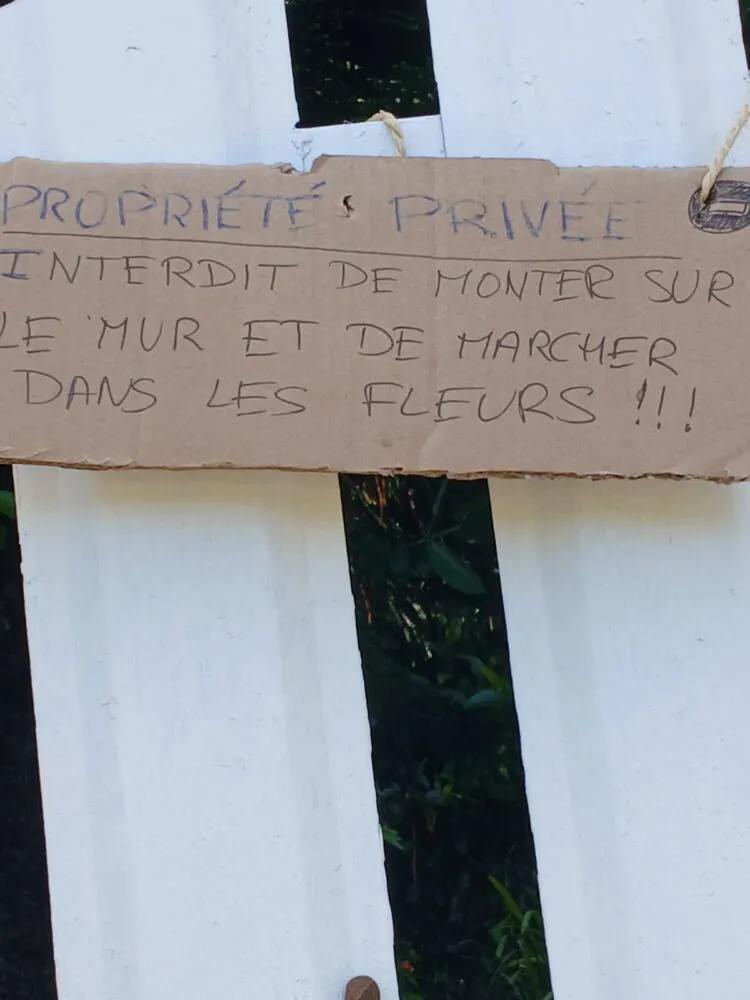 PROPRIÉTÉ PRIVÉE
INTERDIT DE MONTER SUR
LE MUR ET DE MARCHER
DANS LES FLEURS !!!